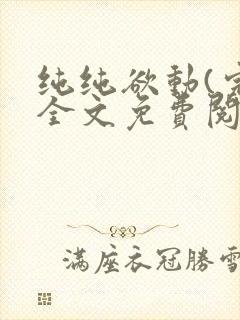 纯纯欲動(完
全文免費閱
满座衣冠勝雪